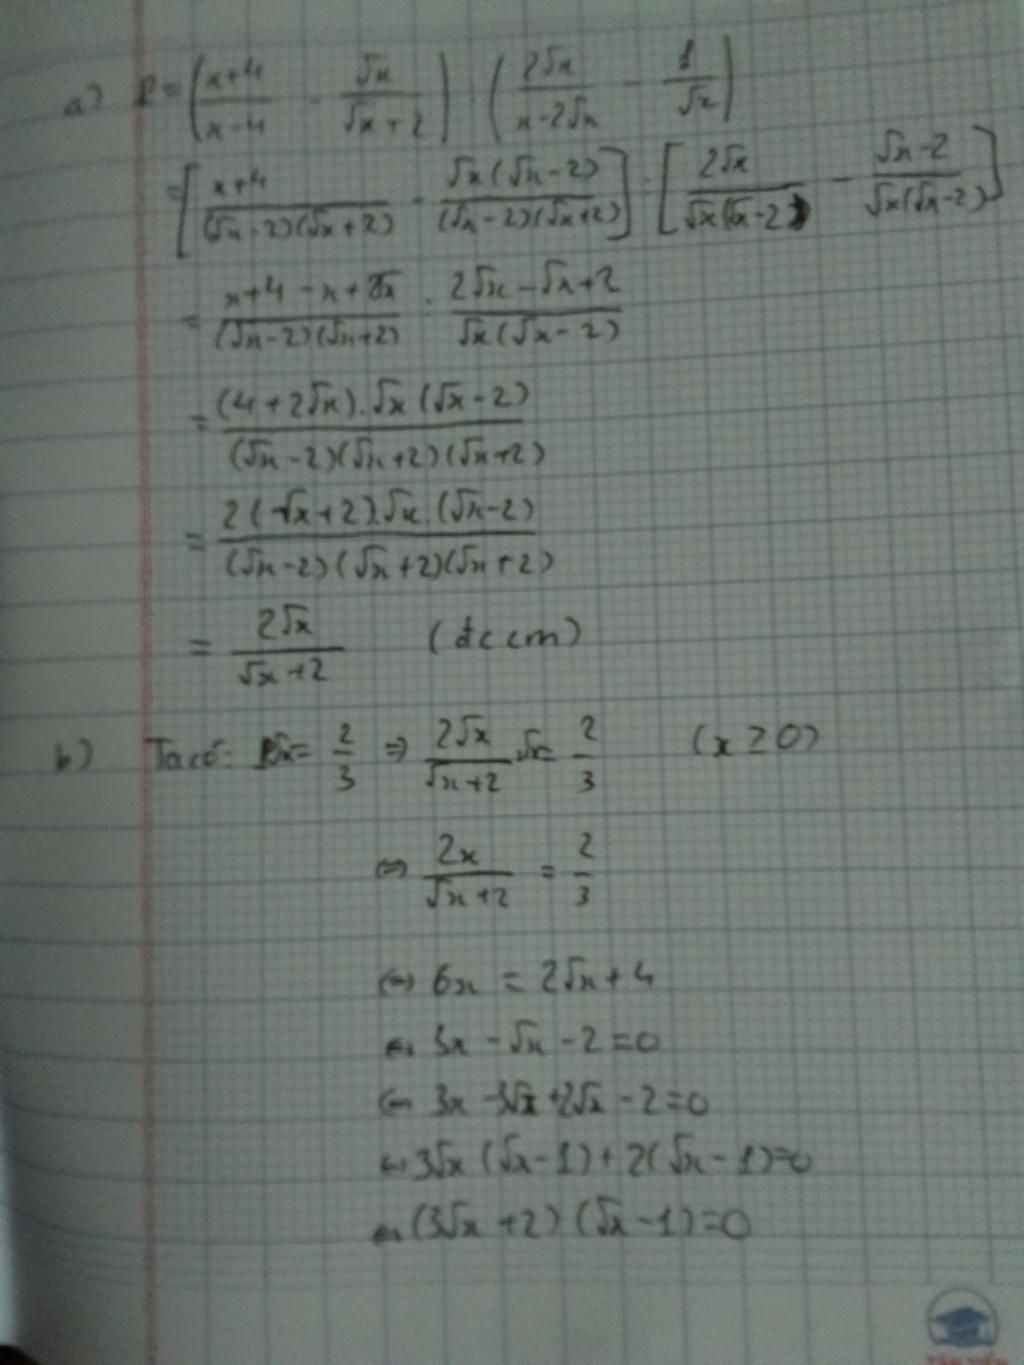 a) P = (x+4/x-4 - √x/√x+2) : (2√x/x-2√x - 1/√x)
= [x+4/(√x-2)(√x+2) - √x(√x-2)/(√x-2)(√x+2)] : [2√x/√x(√x-2) - √x-2/√x(√x-2)]
= x+4-x+2√x/(√x-2)(√x+2) : 2√x-√x+2/√x(√x-2)
= (4+2√x).√x(√x-2)/(√x-2)(√x+2)(√x+2)
= 2(√x+2).√x.(√x-2)/(√x-2)(√x+2)(√x+2)
= 2√x/√x+2 (đccm)
b) Ta có: P√x = 2/3 => 2√x/√x+2 √x = 2/3 (x ≥ 0)
<=> 2x/√x+2 = 2/3
<=> 6x = 2√x+4
<=> 3x - √x - 2 = 0
<=> 3x - 3√x + 2√x - 2 = 0
<=> 3√x (√x-1) + 2(√x-1) = 0
<=> (3√x+2) (√x-1) = 0